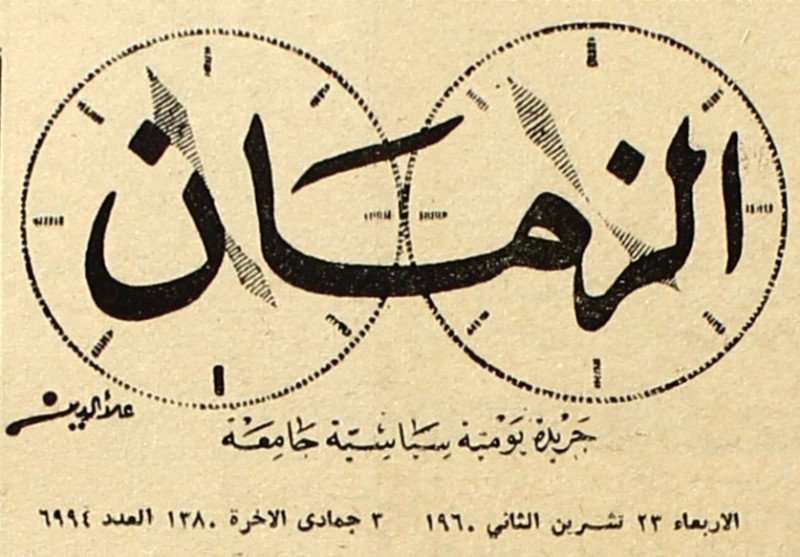 الزمان
علاء الدين
جريدة يومية سياسية جامعة
الاربعاء ٢٣ تشرين الثاني ١٩٦٠ ٣ جمادى الاخرة ١٣٨٠ العدد ٦٩٩٤